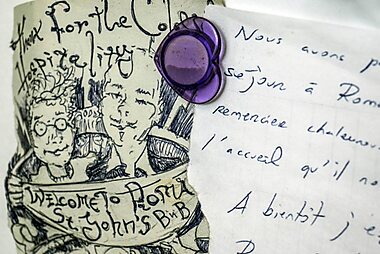 Thank for the Co
Hospitality
WELCOME TO ROMA
St. JOHN'S B&B
Nous avons p
séjour à Rom
remercier chaleureu
l'accueil qu'il no
A bientôt j'es